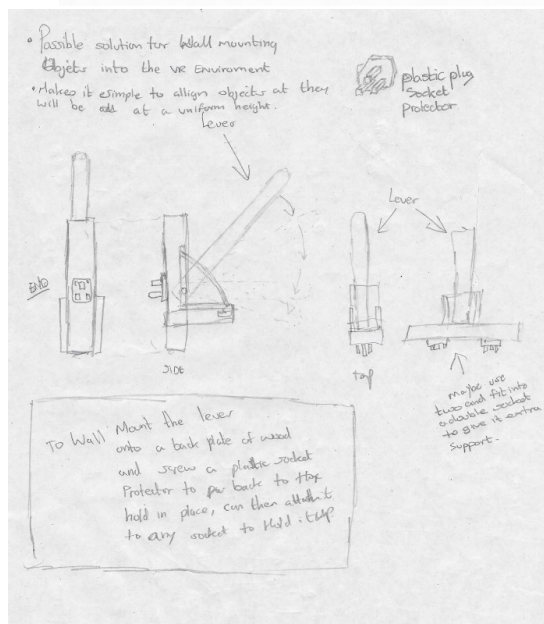 • Possible solution for Wall mounting
Objets into the VR Enviroment
• Makes it simple to allign objects at they
will be at a uniform height.
plastic plug
socket
protector.
Lever
Lever
END
SIDE
top
maybe use
two and fit into
a double socket
to give it extra
support.
To Wall Mount the lever
onto a back plate of wood
and screw a plastic socket
Protector to back to
hold in place, can then
to any socket to Hold it up